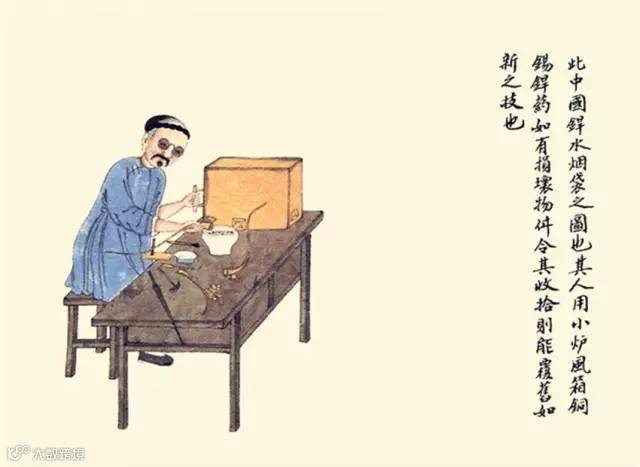 此中國銲水烟袋之圖也其人用小炉風箱銅
錫銲药如有損壞物件令其收拾則能覆舊如
新之技也
大数跨境